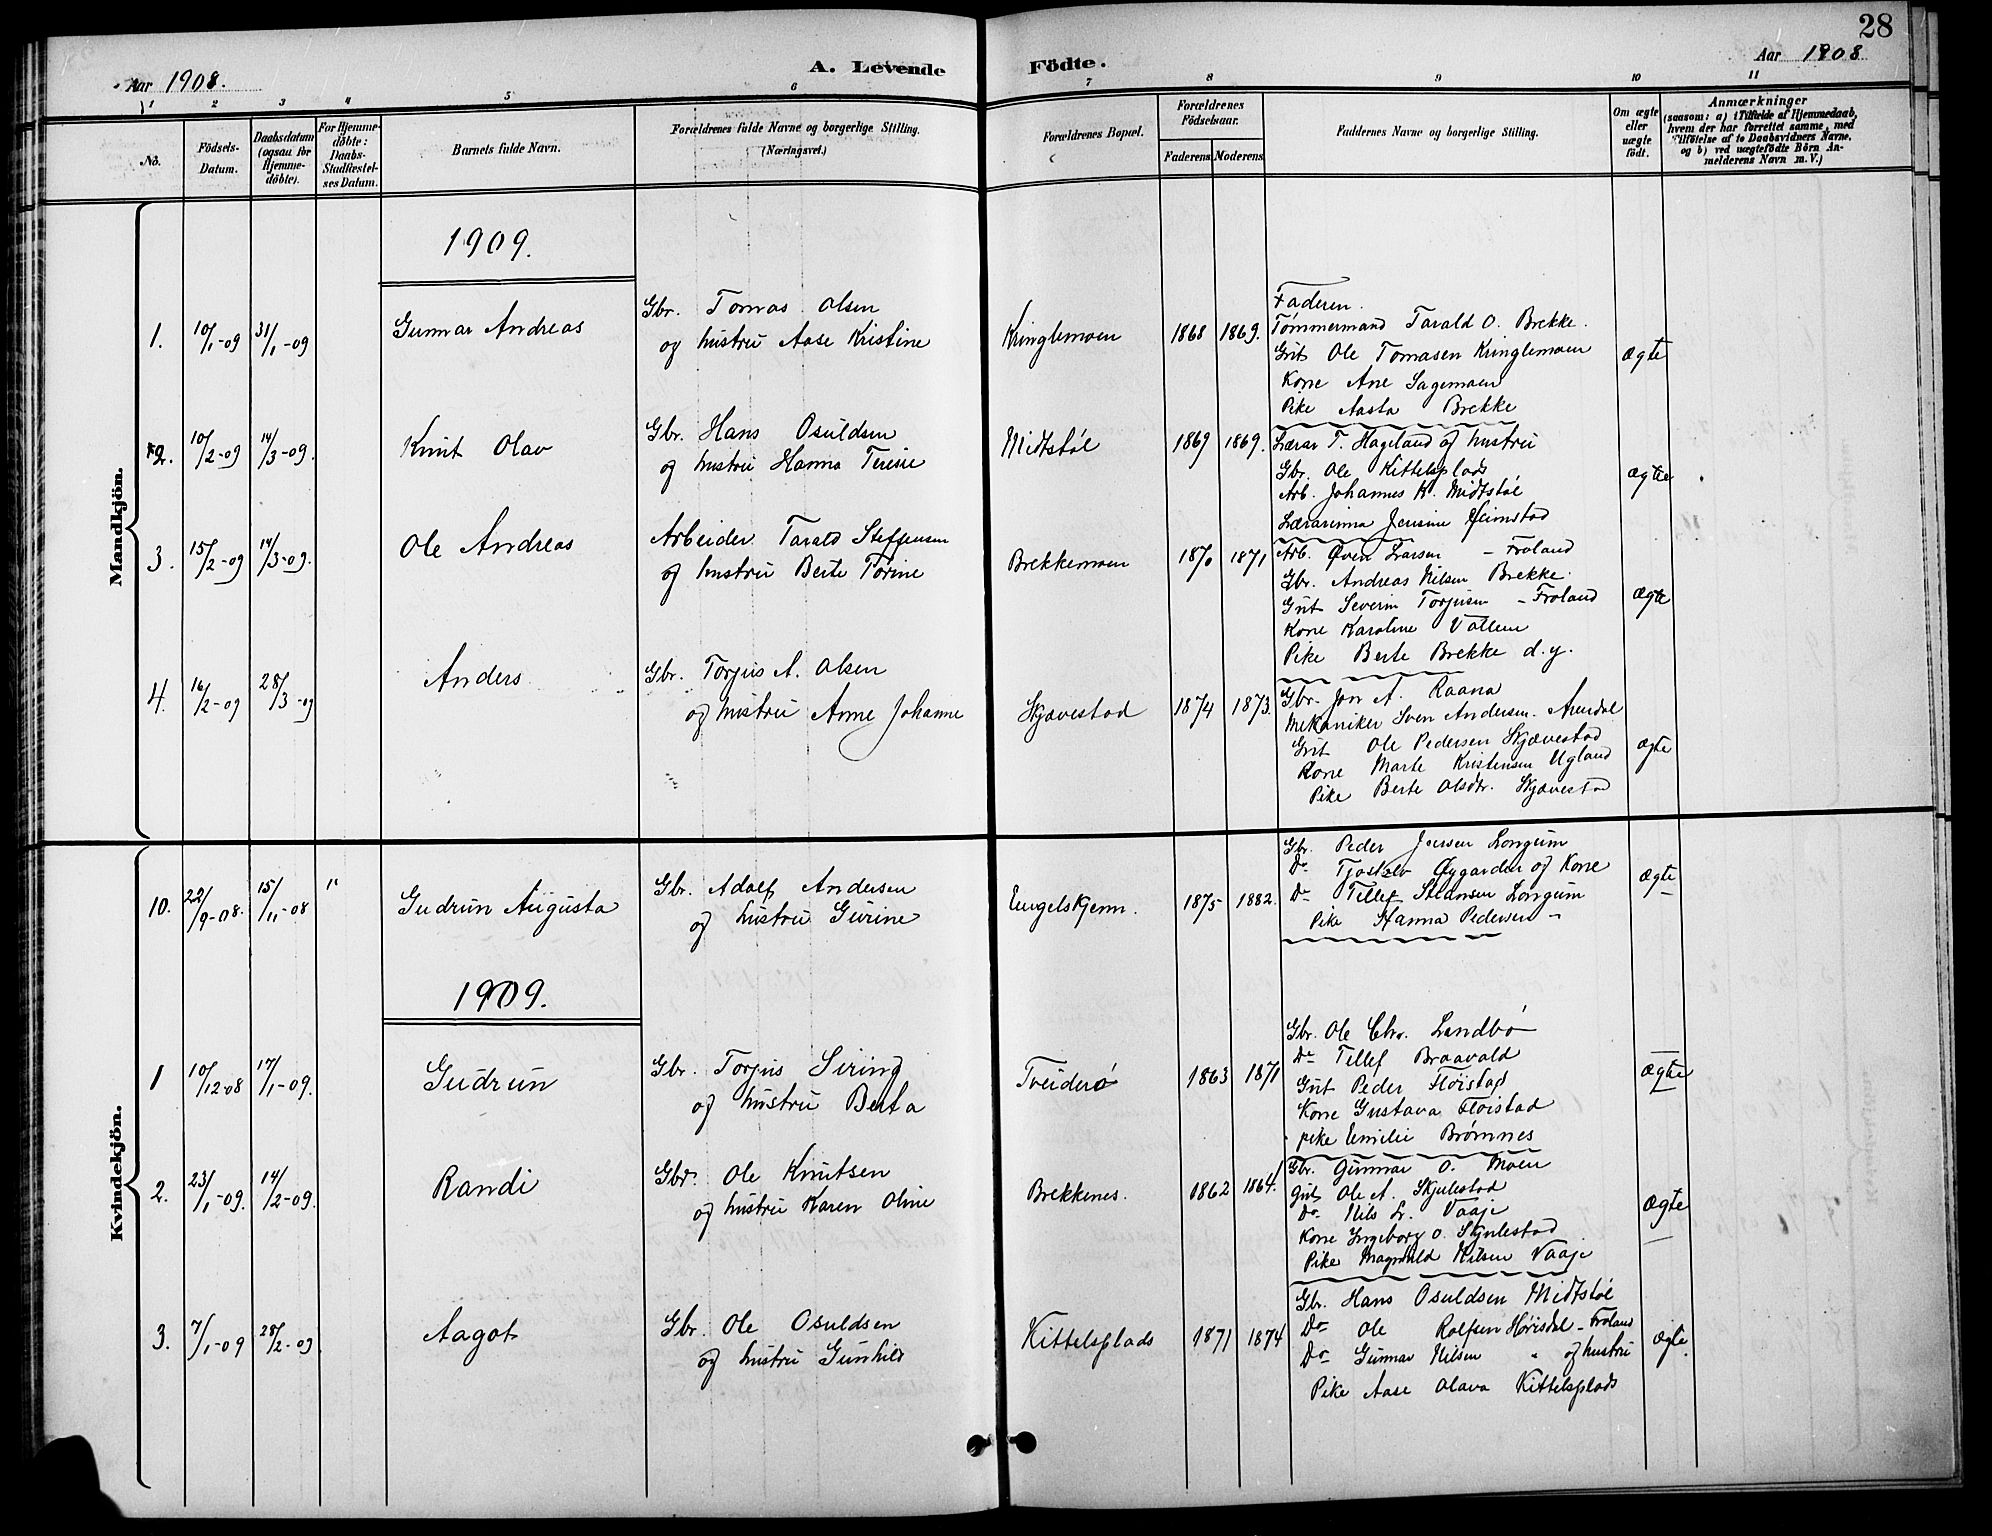 28
Aar 1908.
A. Levende Födte.
Aar 1908
1 2 3 4 5 6 7 8 9 10 11
No.
Födsels-
Datum.
Daabsdatum
(ogsaa for
Hjemme-
döbte).
For Hjemme-
döbte:
Daabs-
Stadfæstel-
ses Datum.
Barnets fulde Navn.
Forældrenes fulde Navne og borgerlige Stilling.
(Næringsvei.)
Forældrenes Bopæl.
Forældrenes
Födselsaar.
Faderens. Moderens.
Faddernes Navne og borgerlige Stilling.
Om ægte
eller
uægte
födt.
Anmærkninger
(saasom: a) i Tilfælde af Hjemmedaab,
hvem der har forrettet samme, med
Tilföielse af to Daabsvidners Navne,
og b) ved uægtefödte Börn An-
melderens Navn m. V.)
Mandkjön.
1909.
1. 10/1-09 31/1-09 Gunnar Andreas
Gbr. Tomas Olsen
og hustru Aase Kristine
Kringlemoen 1868 1869.
Faderen.
Tømmermand Tarald O. Brekke.
Gut Ole Tomasen Kringlemoen
Kone Ane Sagemoen
Pike Aasta Brekke
Ægte
2. 10/2-09 14/3-09. Knut Olav
Gbr. Hans Osuldsen
og hustru Hanna Terese
Midtstøl 1869 1869.
Lærer T. Hageland og hustru
Gbr. Ole Kittelsplads
Arb. Johannes K. Midtstøl
Lærerinna Jensine Heimstad
Ægte
3. 15/2-09 14/3-09. Ole Andreas
Arbeider Tarald Steffensen
og hustru Berte Torine
Brekkemoen 1870 1871
Arb. Øven Larsen - Froland
Gbr. Andreas Nilsen Brekke.
Gut Severin Torjusen - Froland
Kone Karoline Vollem
Pike Berte Brekke d.y.
Ægte
4. 16/2-09 28/3-09 Anders
Gbr. Torjus A. Olsen
og hustru Anne Johanne
Skjævestad 1874 1873.
Gbr. Jon A. Raana
Mekaniker Sven Andersen. Arendal
Gut Ole Pedersen Skjævestad
Kone Marte Kristensen Ugland
Pike Berte Olsdtr. Skjævestad
Ægte
Kvindekjön.
10. 22/9-08. 15/11-08 " Gudrun Augusta
Gbr. Adolf Andersen
og hustru Gurine
Engelskjønn. 1875 1882.
Gbr. Peder Jensen Longum
Do Tjostolv Øygarden og Kone
Do Tellef Stiansen Longum
Pike Hanna Pedersen -
Ægte
1909.
1 10/12-08 17/1-09. Gudrun
Gbr. Torjus Siring
og hustru Berta
Tveiderø 1863 1871
Gbr. Ole Chr. Landbø
Do Tellef Braavold
Gut Peder Fløistad
Kone Gustava Fløistad
Pike Emilie Brømnes
Ægte
2. 23/1-09. 14/2-09. Randi
Gbr. Ole Knutsen
og hustru Karen Oline
Brekkenes. 1862 1864.
Gbr. Gunnar O. Moen
Gut Ole A. Skjulestad
Do Nils L. Vaaje
Kone Ingeborg O. Skjulestad
Pike Magnhild Nilsen Vaaje
Ægte
3. 7/1-09 28/2-09. Aagot
Gbr. Ole Osuldsen
og hustru Gunhild
Kittelsplads 1871 1874
Gbr. Hans Osuldsen Midtstøl
Do Ole Rolfsen Hørisdal - Froland
Do Gunnar Nilsen " og hustru
Pike Aase Olava Kittelsplads
Ægte.